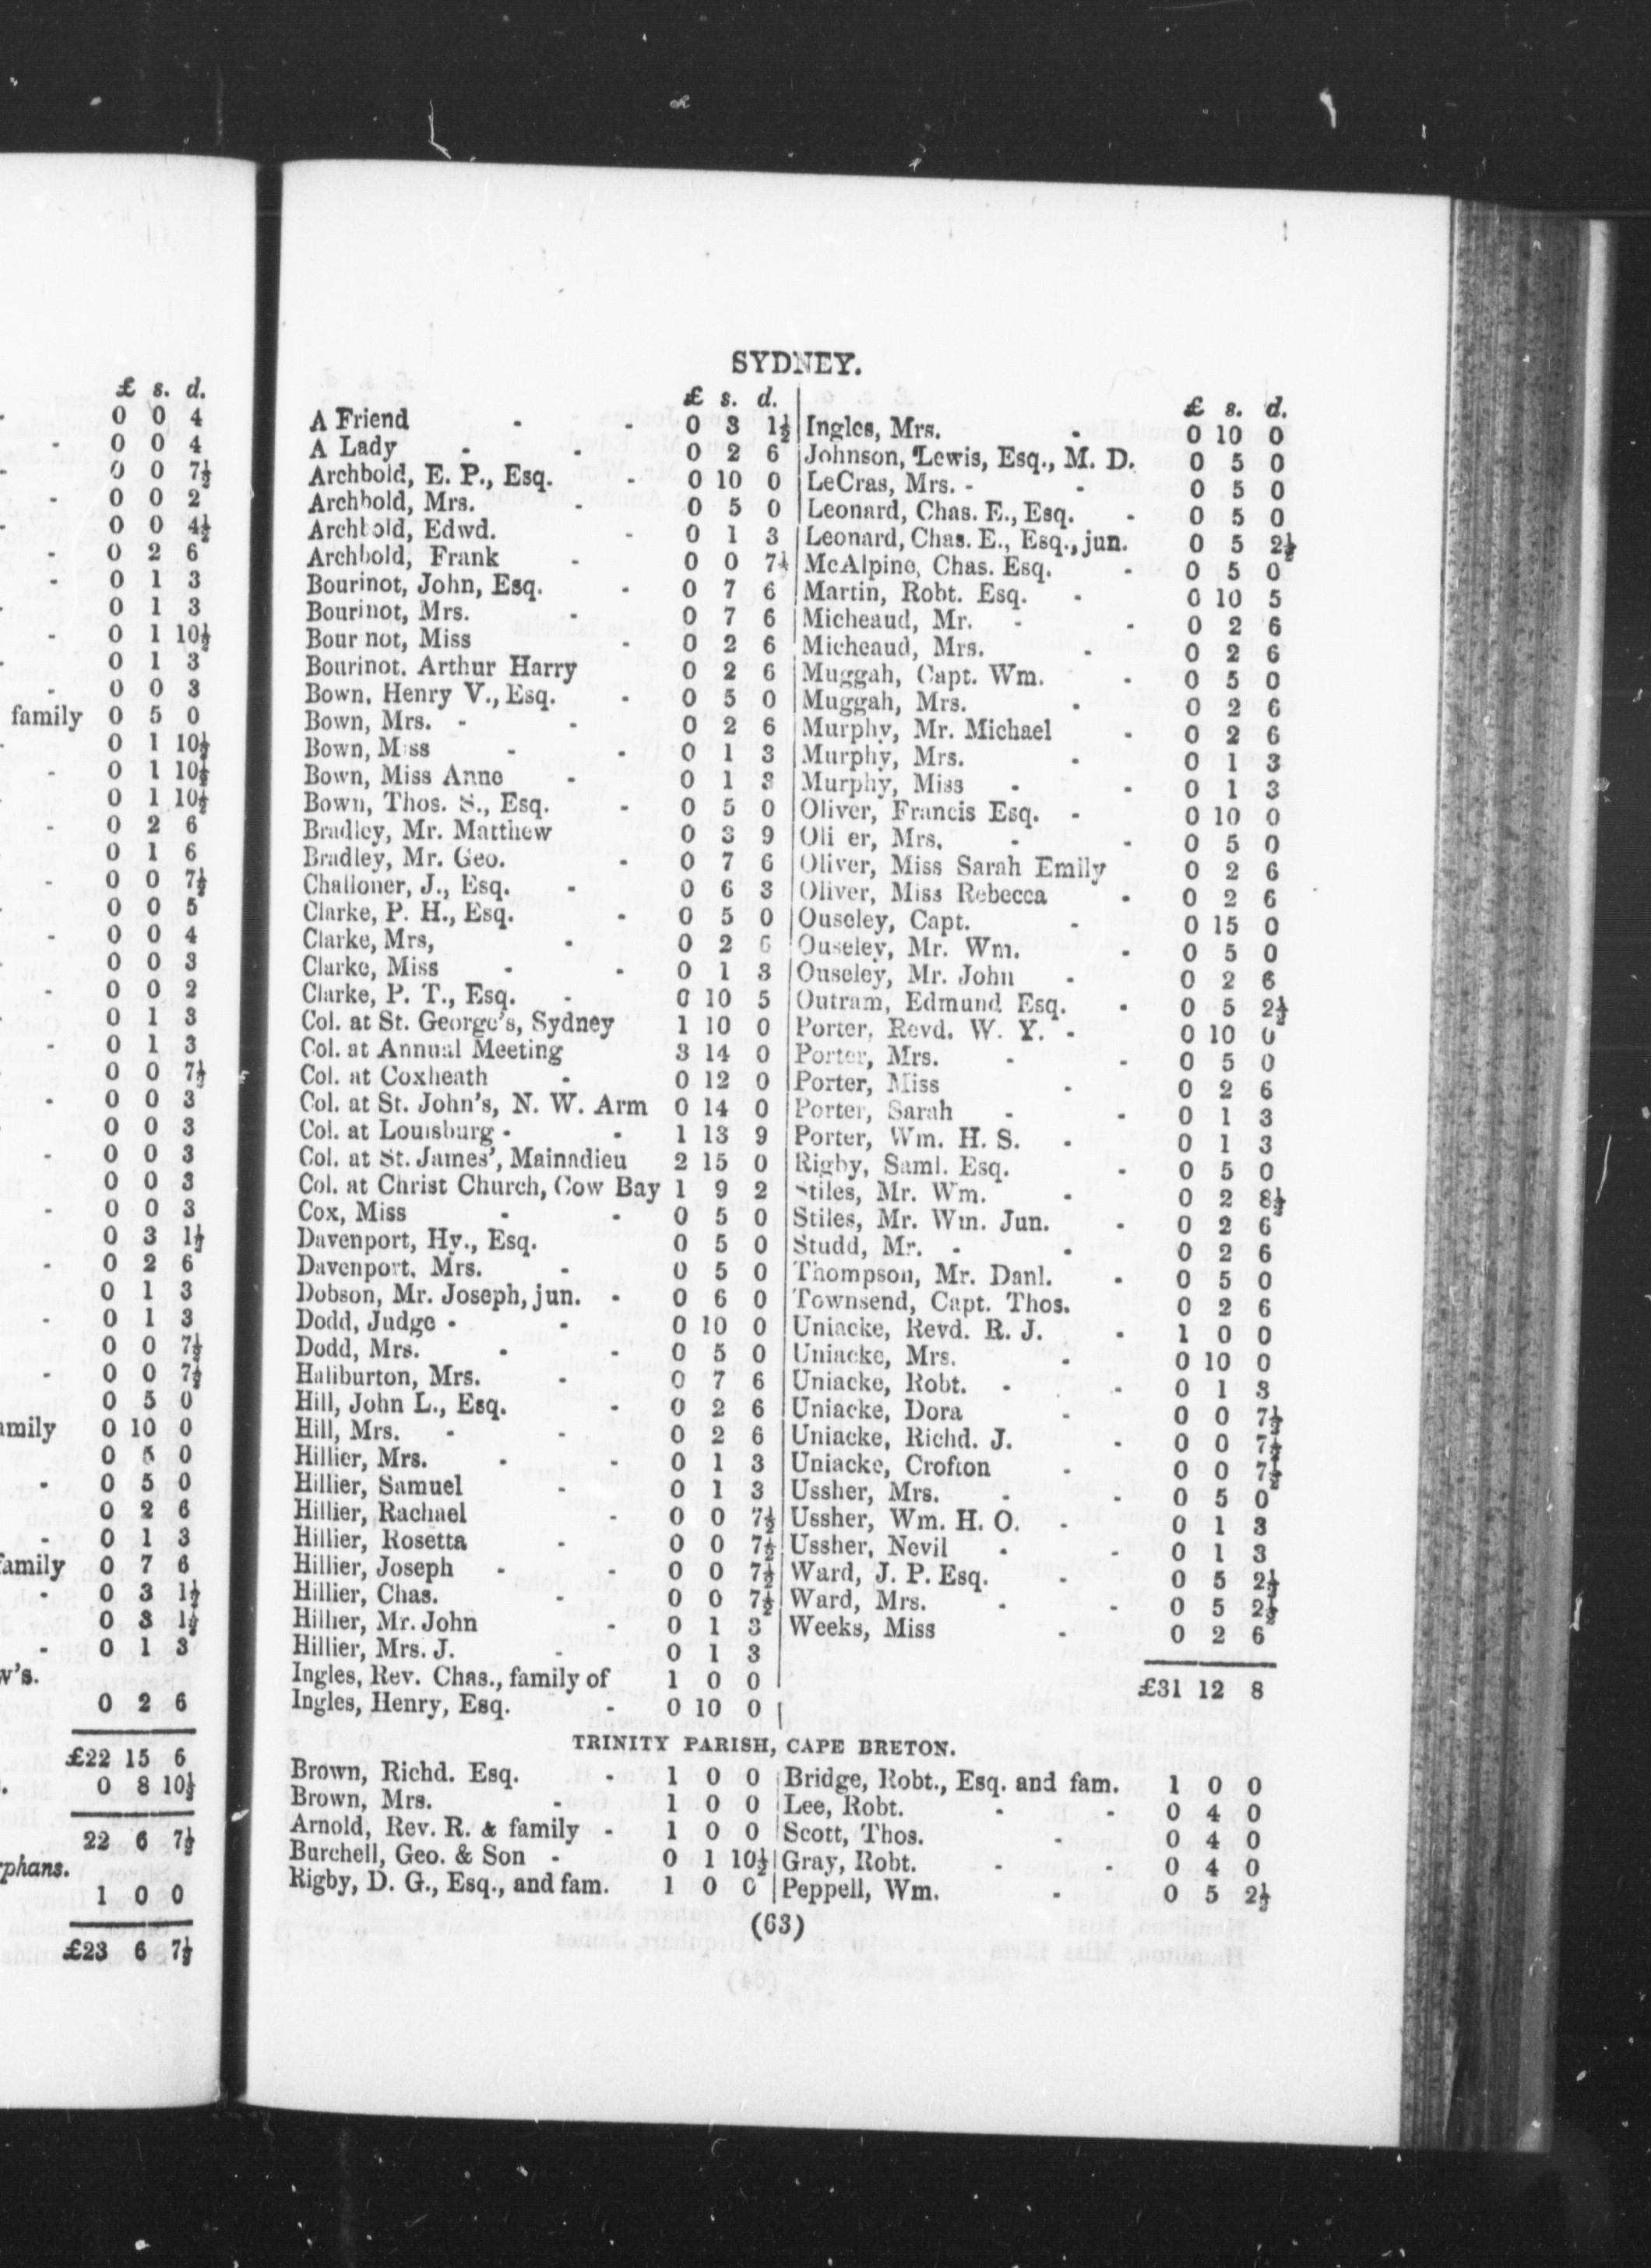 £ s. d.
0 0 4
0 0 4
0 0 7½
0 0 2
0 0 4½
0 2 6
0 1 3
0 1 3
0 1 10½
0 1 3
0 0 3
family 0 5 0
0 1 10½
0 1 10½
0 1 10½
0 2 6
0 1 6
0 0 7½
0 0 5
0 0 4
0 0 3
0 0 2
0 1 3
0 1 3
0 0 7½
0 0 3
0 0 3
0 0 3
0 0 3
0 0 3
0 3 1½
0 2 6
0 1 3
0 1 3
0 0 7½
0 0 7½
0 5 0
amily 0 10 0
0 5 0
0 5 0
0 2 6
0 1 3
family 0 7 6
0 3 1½
0 3 1½
0 1 3
w's.
0 2 6
£22 15 6
0 8 10½
22 6 7½
rphans.
1 0 0
£23 6 7½
SYDNEY.
£ s. d.
A Friend - - 0 3 1½
A Lady - - 0 2 6
Archbold, E. P., Esq. - 0 10 0
Archbold, Mrs. - 0 5 0
Archbold, Edwd. - 0 1 3
Archbold, Frank - 0 0 7½
Bourinot, John, Esq. - 0 7 6
Bourinot, Mrs. - 0 7 6
Bour not, Miss - 0 2 6
Bourinot. Arthur Harry 0 2 6
Bown, Henry V., Esq. - 0 5 0
Bown, Mrs. - - 0 2 6
Bown, M ss - - 0 1 3
Bown, Miss Anne - 0 1 3
Bown, Thos. S., Esq. - 0 5 0
Bradley, Mr. Matthew 0 3 9
Bradley, Mr. Geo. - 0 7 6
Challoner, J., Esq. - 0 6 3
Clarke, P. H., Esq. - 0 5 0
Clarke, Mrs, - 0 2 6
Clarke, Miss - - 0 1 3
Clarke, P. T., Esq. - 0 10 5
Col. at St. George's, Sydney 1 10 0
Col. at Annual Meeting 3 14 0
Col. at Coxheath - 0 12 0
Col. at St. John's, N. W. Arm 0 14 0
Col. at Louisburg - - 1 13 9
Col. at St. James', Mainadieu 2 15 0
Col. at Christ Church, Cow Bay 1 9 2
Cox, Miss - - 0 5 0
Davenport, Hy., Esq. 0 5 0
Davenport, Mrs. - 0 5 0
Dobson, Mr. Joseph, jun. - 0 6 0
Dodd, Judge - - 0 10 0
Dodd, Mrs. - - 0 5 0
Haliburton, Mrs. - 0 7 6
Hill, John L., Esq. - 0 2 6
Hill, Mrs. - - 0 2 6
Hillier, Mrs. - - 0 1 3
Hillier, Samuel - 0 1 3
Hillier, Rachael - 0 0 7½
Hillier, Rosetta - 0 0 7½
Hillier, Joseph - - 0 0 7½
Hillier, Chas. - 0 0 7½
Hillier, Mr. John - 0 1 3
Hillier, Mrs. J. - 0 1 3
Ingles, Rev. Chas., family of 1 0 0
Ingles, Henry, Esq. - 0 10 0
£ s. d.
Ingles, Mrs. - 0 10 0
Johnson, Lewis, Esq., M. D. 0 5 0
LeCras, Mrs. - - 0 5 0
Leonard, Chas. E., Esq. - 0 5 0
Leonard, Chas. E., Esq., jun. 0 5 2½
McAlpine, Chas. Esq. - 0 5 0
Martin, Robt. Esq. - 0 10 5
Micheaud, Mr. - - 0 2 6
Micheaud, Mrs. - 0 2 6
Muggah, Capt. Wm. - 0 5 0
Muggah, Mrs. - 0 2 6
Murphy, Mr. Michael - 0 2 6
Murphy, Mrs. - 0 1 3
Murphy, Miss - - 0 1 3
Oliver, Francis Esq. - 0 10 0
Oli er, Mrs. - - 0 5 0
Oliver, Miss Sarah Emily 0 2 6
Oliver, Miss Rebecca - 0 2 6
Ouseley, Capt. - 0 15 0
Ouseley, Mr. Wm. - 0 5 0
Ouseley, Mr. John - 0 2 6
Outram, Edmund Esq. - 0 5 2½
Porter, Revd. W. Y. - 0 10 0
Porter, Mrs. - - 0 5 0
Porter, Miss - 0 2 6
Porter, Sarah - - 0 1 3
Porter, Wm. H. S. - 0 1 3
Rigby, Saml. Esq. - 0 5 0
Stiles, Mr. Wm. - 0 2 8½
Stiles, Mr. Wm. Jun. - 0 2 6
Studd, Mr. - - 0 2 6
Thompson, Mr. Danl. - 0 5 0
Townsend, Capt. Thos. 0 2 6
Uniacke, Revd. R. J. - 1 0 0
Uniacke, Mrs. - 0 10 0
Uniacke, Robt. - - 0 1 3
Uniacke, Dora - 0 0 7½
Uniacke, Richd. J. - 0 0 7½
Uniacke, Crofton - 0 0 7½
Ussher, Mrs. - - 0 5 0
Ussher, Wm. H. O. - 0 1 3
Ussher, Nevil - - 0 1 3
Ward, J. P. Esq. - 0 5 2½
Ward, Mrs. - - 0 5 2½
Weeks, Miss - 0 2 6
£31 12 8
TRINITY PARISH, CAPE BRETON.
Brown, Richd. Esq. - 1 0 0
Brown, Mrs. - 1 0 0
Arnold, Rev. R. & family - 1 0 0
Burchell, Geo. & Son - 0 1 10½
Rigby, D. G., Esq., and fam. 1 0 0
Bridge, Robt., Esq. and fam. 1 0 0
Lee, Robt. - - 0 4 0
Scott, Thos. - 0 4 0
Gray, Robt. - - 0 4 0
Peppell, Wm. - 0 5 2½
(63)